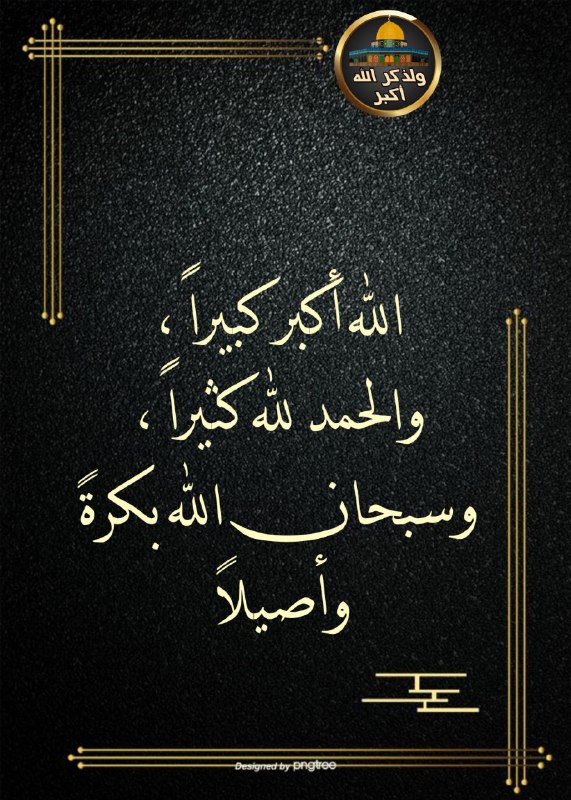 ولذكر الله
أكبر
الله أكبر كبيراً ،
والحمد لله كثيراً ،
وسبحان الله بكرةً
وأصيلاً
Designed by pngtree